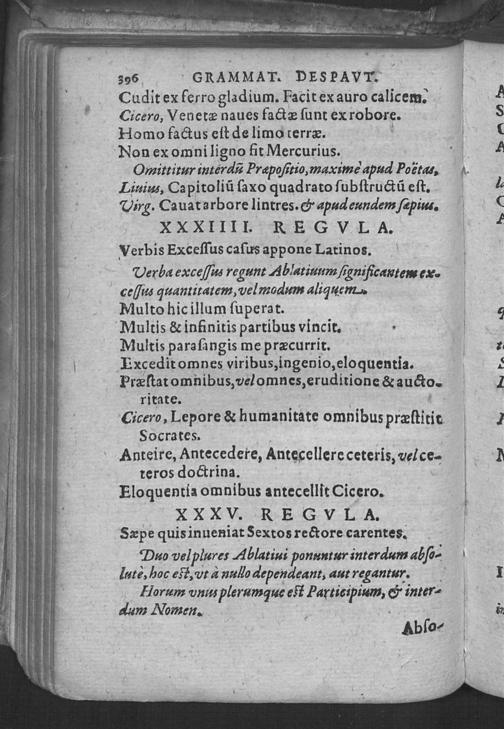 396 GRAMMAT. DESPAVT.
Cudit ex ferro gladium. Facit ex auro calicem.
Cicero, Venetæ naues factæ sunt ex robore.
Homo factus est de limo terræ.
Non ex omni ligno fit Mercurius.
Omittitur interdũ Præpositio, maximè apud Poëtas.
Liuius, Capitoliũ saxo quadrato substructũ est.
Virg. Cauat arbore lintres. & apud eundem sæpius.
XXXIIII. REGVLA.
Verbis Excessus casus appone Latinos.
Verba excessus regunt Ablatiuum significantem ex-
cessus quantitatem, vel modum aliquem.
Multo hic illum superat.
Multis & infinitis partibus vincit.
Multis parasangis me præcurrit.
Excedit omnes viribus, ingenio, eloquentia.
Præstat omnibus, vel omnes, eruditione & aucto-
ritate.
Cicero, Lepore & humanitate omnibus præstitit
Socrates.
Anteire, Antecedere, Antecellere ceteris, vel ce-
teros doctrina.
Eloquentia omnibus antecellit Cicero.
XXXV. REGVLA.
Sæpe quis inueniat Sextos rectore carentes.
Duo vel plures Ablatiui ponuntur interdum abso-
lutè, hoc est, vt à nullo dependeant, aut regantur.
Horum vnus plerumque est Participium, & inter-
dum Nomen.
Abso-